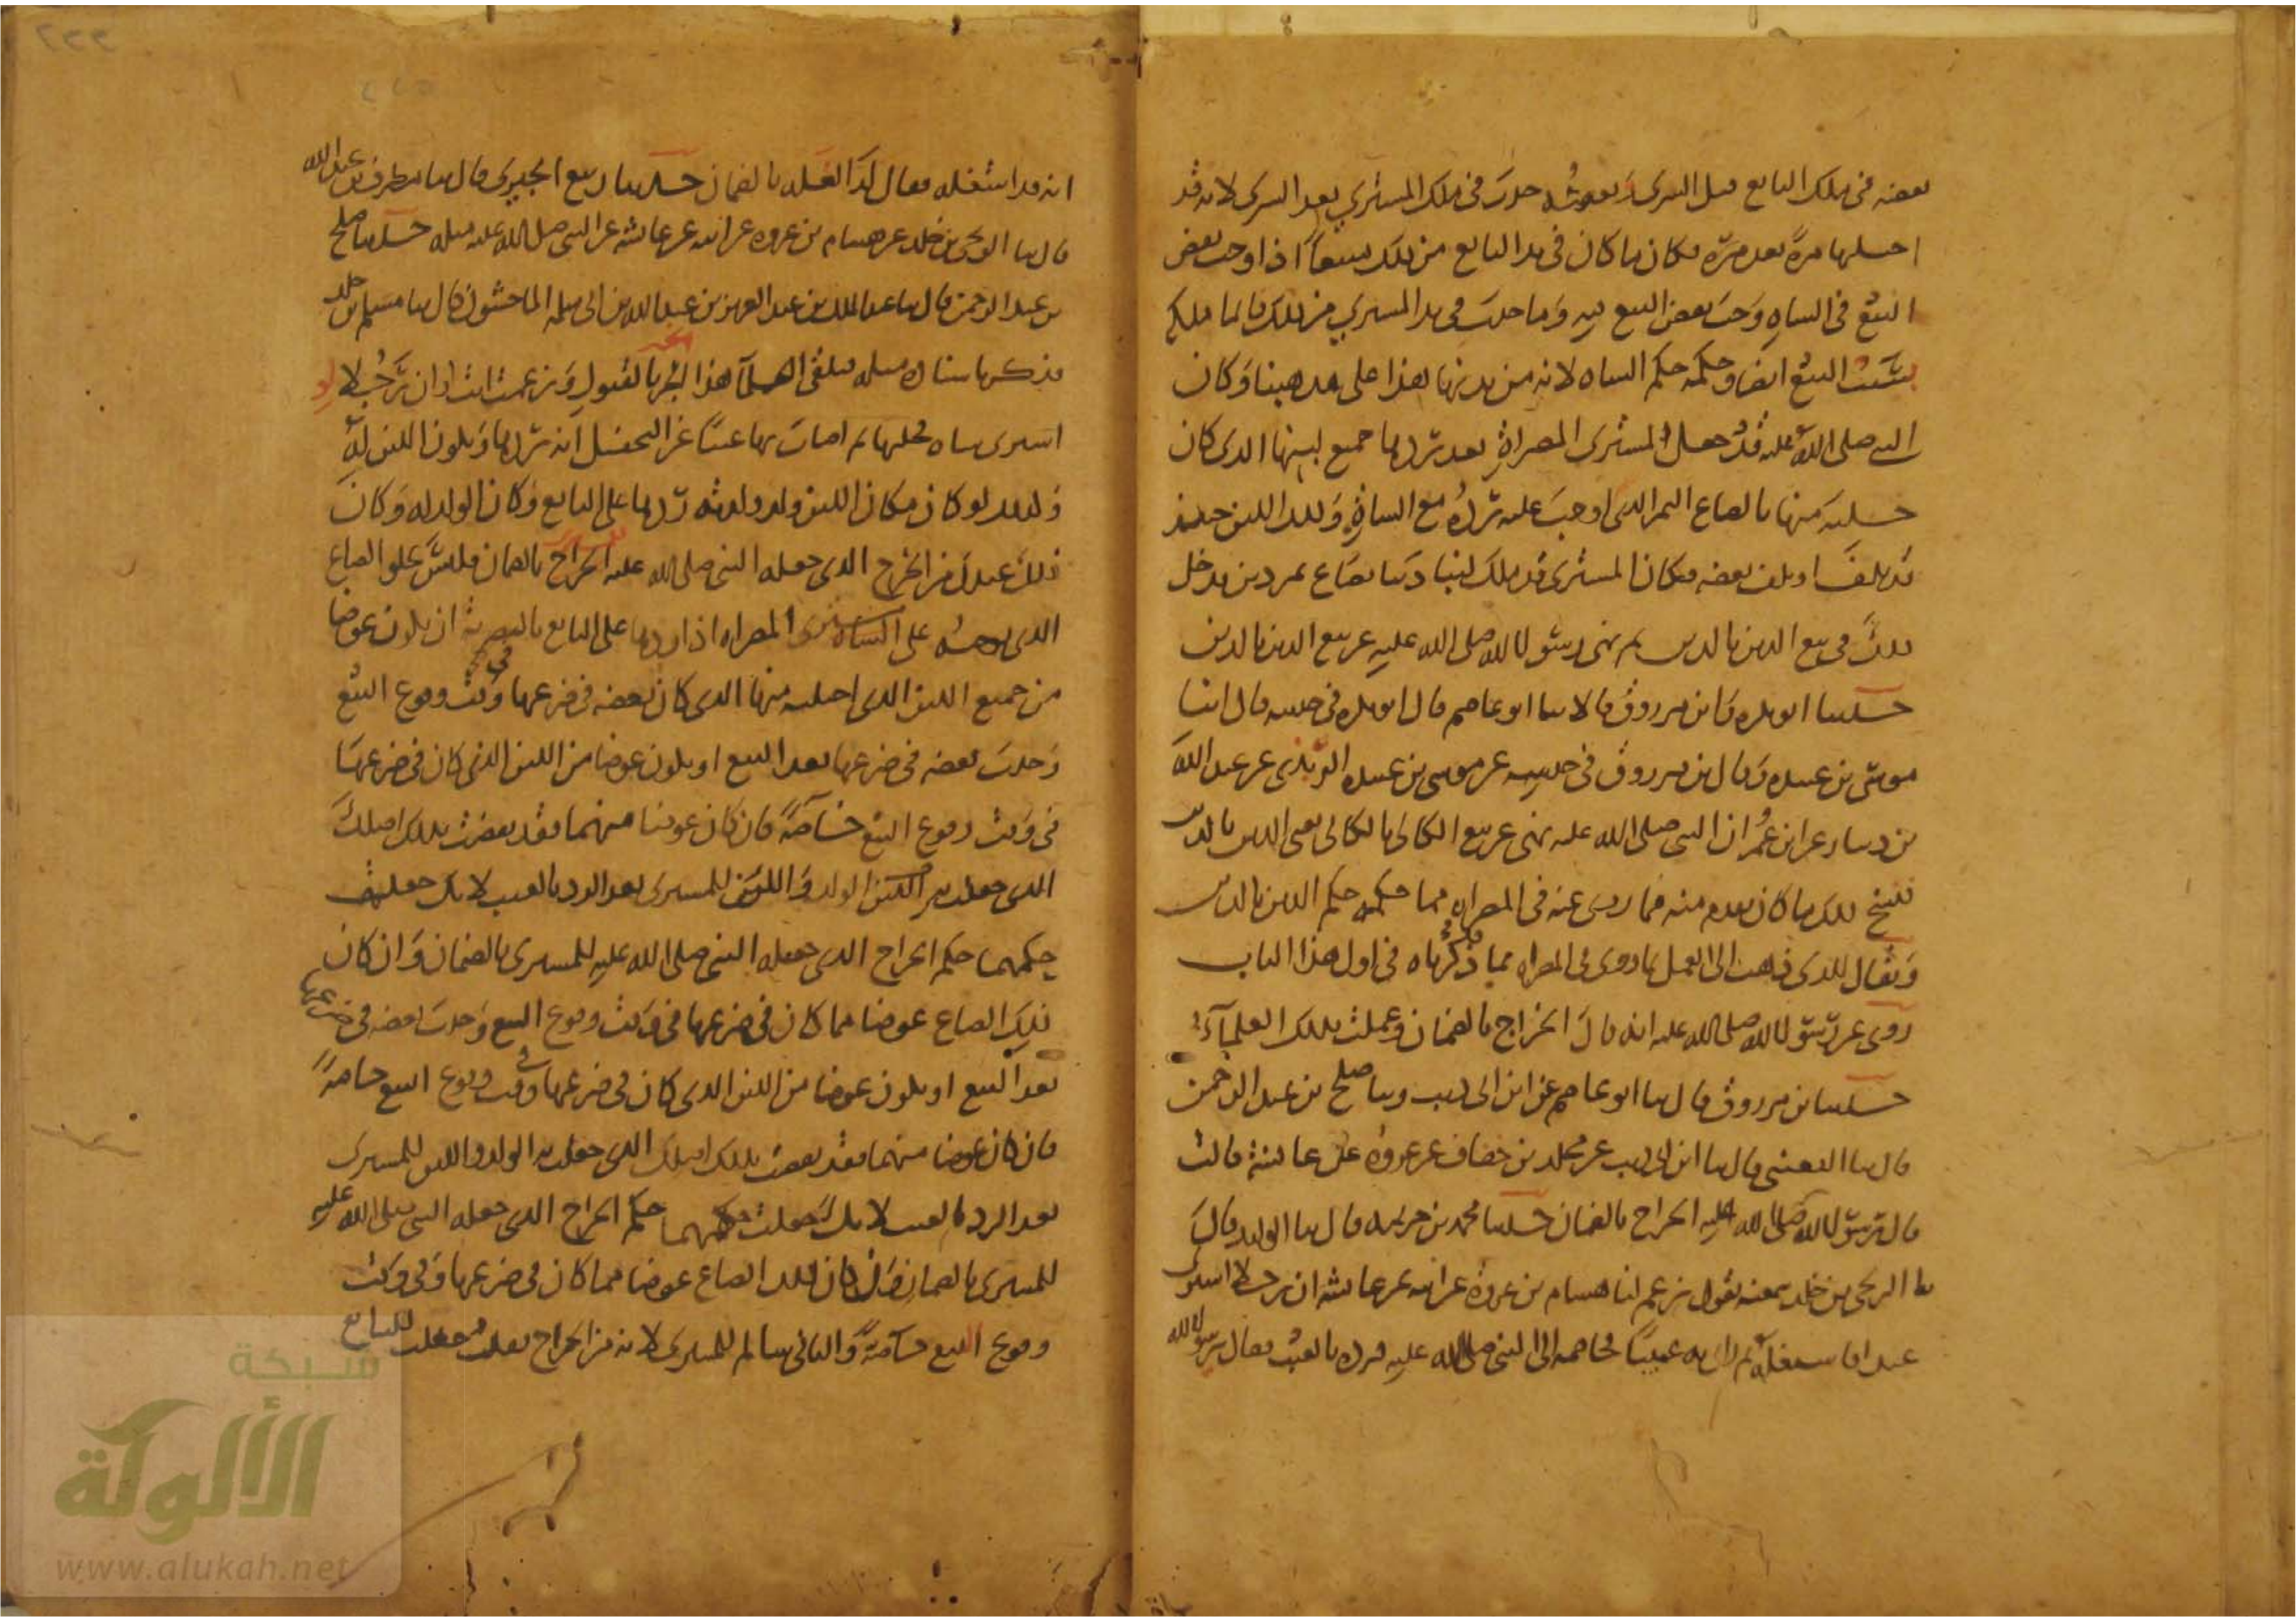 بعضه في ملك البايع قبل الشرى وبعضه حدث في ملك المشتري بعد الشرى لانه قد
احتلبها مرة بعد مرة فكان ما كان في يد البايع من ذلك مبيعا اذا اوجب نقض
البيع في الشاه وجب نقض البيع فيه وما حدث في يد المشتري من ذلك فانما ملكه
بسبب البيع ايضا وحكمه حكم الشاه لانه من بدنها هذا على مذهبنا وكان
النبي صلى الله عليه قد جعل لمشتري المصراة بعد ردها جميع لبنها الذي كان
حلبه منها بالصاع التمر الذي اوجب عليه رده مع الشاة وذلك اللبن حينئذ
قد تلف او تلف بعضه فكان المشتري قد ملك لبنا دينا بصاع تمر دين فدخل
ذلك في بيع الدين بالدين ثم نهى رسول الله صلى الله عليه عن بيع الدين بالدين
حدثنا ابو بكره وابن مرزوق قالا ثنا ابو عاصم قال ابو بكره في حديثه قال انبا
موسى بن عبيده وقال ابن مرزوق في حديثه عن موسى بن عبيده الربذي عن عبد الله
بن دينار عن ابن عمر ان النبي صلى الله عليه نهى عن بيع الكالئ بالكالئ يعني الدين بالدين
فنسخ ذلك ما كان تقدم منه فيما روي عنه في المصراه مما حكمه حكم الدين بالدين
ويقال للذي ذهب الى العمل بما روي في المصراه مما ذكرناه في اول هذا الباب
روي عن رسول الله صلى الله عليه انه قال الخراج بالضمان وعملت بذلك العلماء
حدثنا ابن مرزوق قال ثنا ابو عاصم عن ابن ابي ذيب وثنا صلح بن عبد الرحمن
قال ثنا القعنبي قال ثنا ابن ابي ذيب عن مخلد بن خفاف عن عروه عن عايشة قالت
قال رسول الله صلى الله عليه الخراج بالضمان حدثنا محمد بن خزيمه قال ثنا ابو الوليد قال
ثنا الزنجي بن خلد سمعته يقول زعم لنا هشام بن عروة عن ابيه عن عايشه ان رجلا اشترى
عبدا فاستغله ثم راى به عيبا فخاصمه الى النبي صلى الله عليه فرده بالعيب فقال يرسول الله
انه قد استغله فقال له الغله بالضمان حدثنا ربيع الجيزي قال ثنا مطرف بن عبد الله
قال ثنا الزنجي بن خلد عن هشام بن عروه عن ابيه عن عايشه عن النبي صلى الله عليه مثله حدثنا صلح
بن عبد الرحمن قال ثنا عبد الملك بن عبد العزيز بن عبد الله بن ابي سلمه الماجشون قال ثنا مسلم بن خلد
فذكر باسناده مثله فتلقى العلماء هذا الخبر بالقبول وزعمت انت ان رجلا لو
اشترى شاه فحلبها ثم اصاب بها عيبا غير التحفيل انه يردها ويكون اللبن له
وكذلك لو كان مكان اللبن ولد ولدته ردها على البايع وكان الولد له وكان
ذلك عندك من الخرج الذي جعله النبي صلى الله عليه للمشتري بالضمان فليس يخلو الصاع
الذي توجبه على مشتري المصراه اذا ردها على البايع بالتصرية ان يكون عوضا
من جميع اللبن الذي احتلبه منها الذي كان بعضه في ضرعها في وقت وقوع البيع
وحدث بعضه في ضرعها بعد البيع او يكون عوضا من اللبن الذي كان في ضرعها
في وقت وقوع البيع خاصة فان كان عوضا منهما فقد نقضت بذلك اصلك
الذي جعلت به الولد واللبن للمشتري بعد الرد بالعيب لانك جعلت
حكمهما حكم الخراج الذي جعله النبي صلى الله عليه للمشتري بالضمان وان كان
ذلك الصاع عوضا مما كان في ضرعها في وقت وقوع البيع وحدث بعضه في ضرعها
بعد البيع او يكون عوضا من اللبن الذي كان في ضرعها في وقت وقوع البيع خاصة
فان كان عوضا منهما فقد نقضت بذلك اصلك الذي جعلت به الولد واللبن للمشتري
بعد الرد بالعيب لانك جعلت حكمهما حكم الخراج الذي جعله النبي صلى الله عليه
للمشتري بالضمان وان كان ذلك الصاع عوضا مما كان في ضرعها في وقت
وقوع البيع خاصة والباقي سالم للمشتري لانه من الخراج فقد جعلت للبايع
شبكة
الألوكة
www.alukah.net